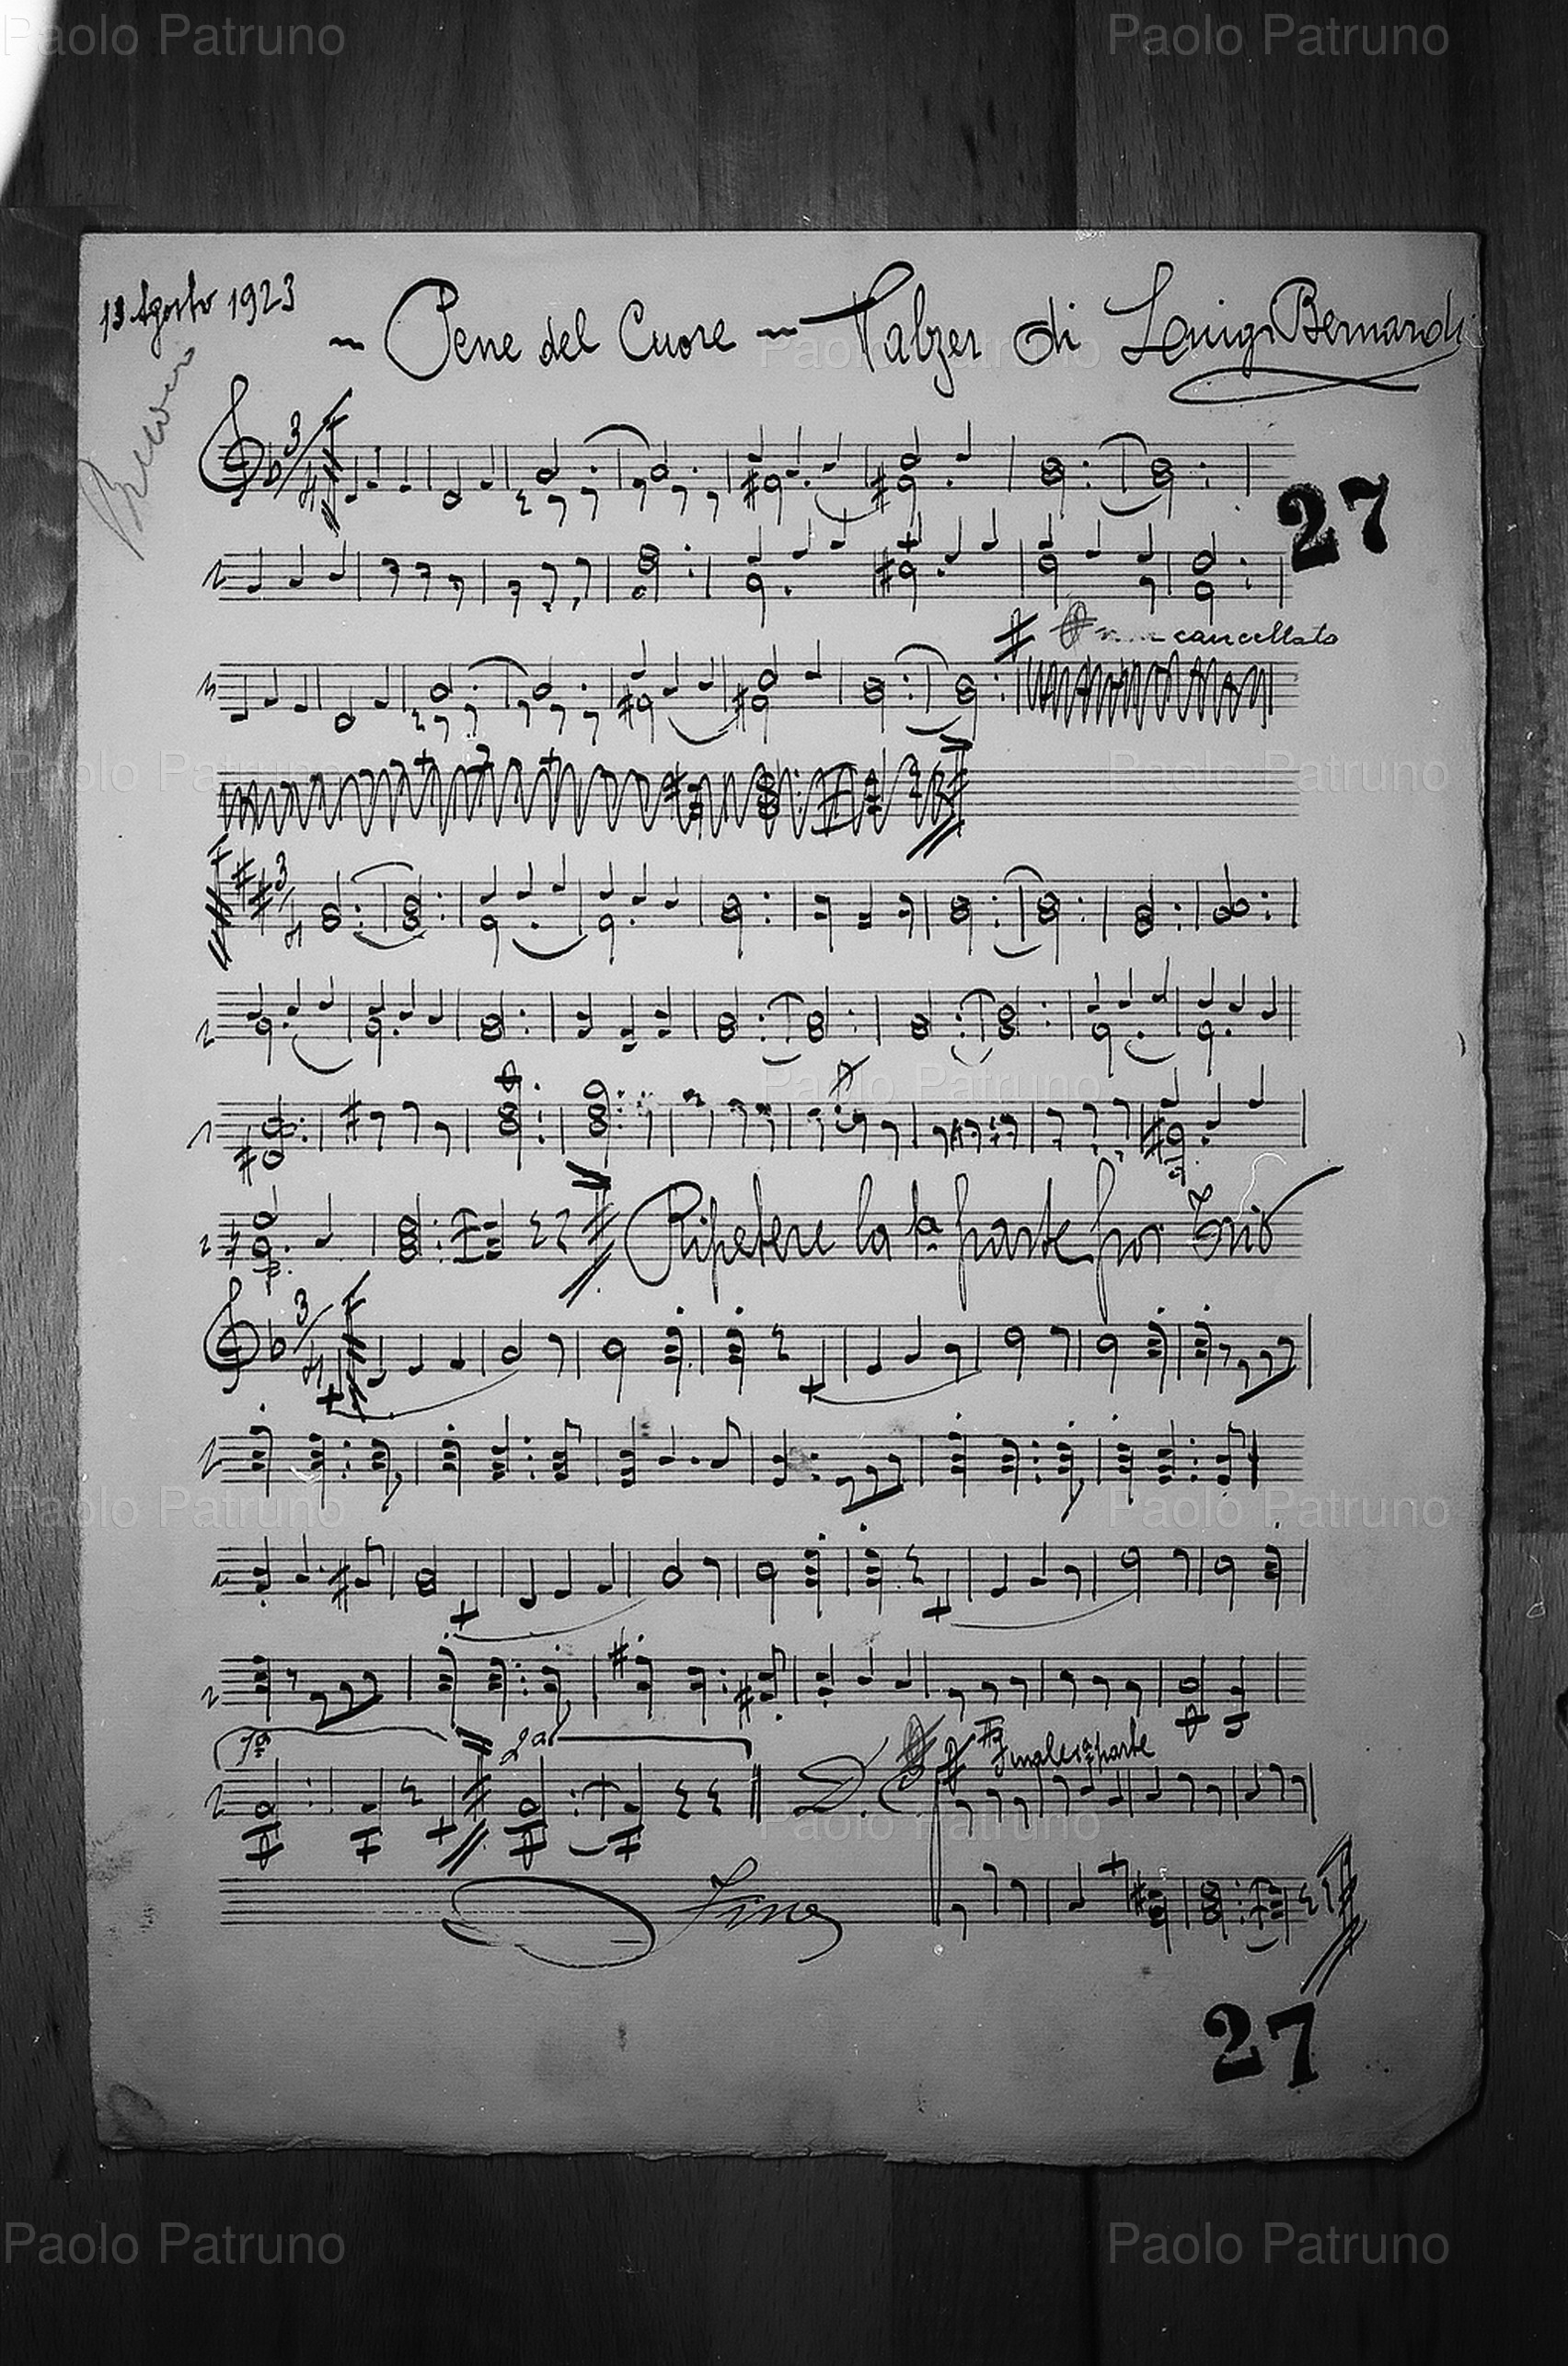 Paolo Patruno Paolo Patruno
Agosto 1923
~ Pene del Cuore ~ Valzer di Luigi Bernardi
Paolo Patruno
3/4
27
cancellato
Paolo Patruno Paolo Patruno
3/4
Paolo Patruno
Ripetere la 1ª parte poi Trio
3/4
Paolo Patruno Paolo Patruno
1ª 2ª
Finale 1ª parte
D. C.
Paolo Patruno
Fine
27
Paolo Patruno Paolo Patruno